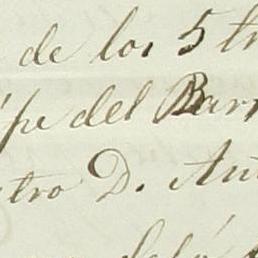 de los 5 tr
pe del Barr
tro D. Ant